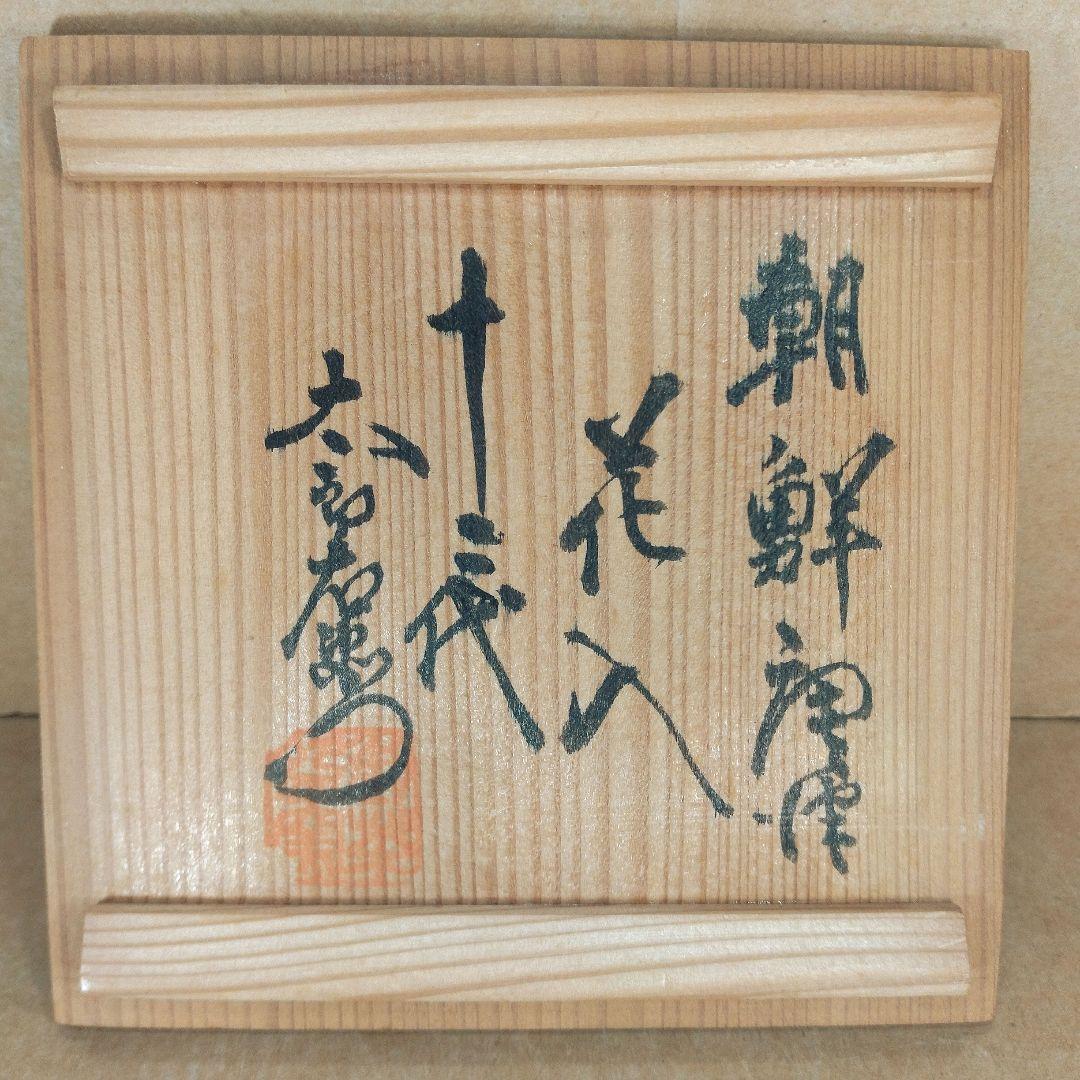 朝鮮唐津
花入
十三代
太郎右衛門